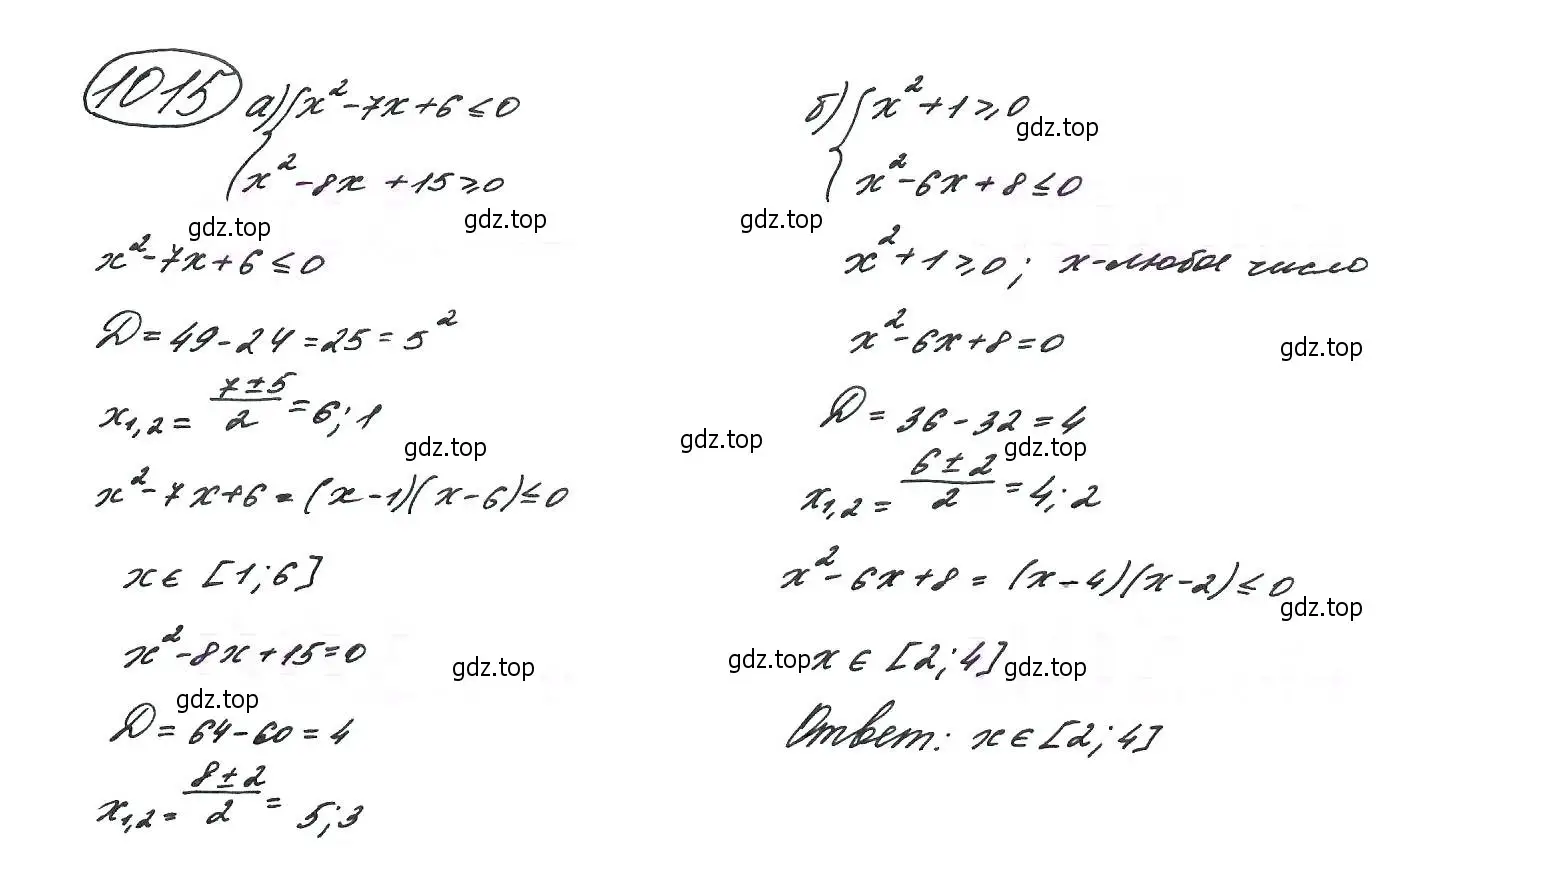 1015 а) { x² - 7x + 6 ≤ 0
x² - 8x + 15 ≥ 0
gdz.top gdz.top
x² - 7x + 6 ≤ 0
D = 49 - 24 = 25 = 5²
x₁,₂ = (7 ± 5)/2 = 6; 1
gdz.top
x² - 7x + 6 = (x - 1)(x - 6) ≤ 0
x ∈ [1; 6]
x² - 8x + 15 = 0
gdz.top
gdz.top
D = 64 - 60 = 4
x₁,₂ = (8 ± 2)/2 = 5; 3
б) { x² + 1 ≥ 0
gdz.top
x² - 6x + 8 ≤ 0
gdz.top
x² + 1 ≥ 0; x - любое число
x² - 6x + 8 = 0
gdz.top
D = 36 - 32 = 4
gdz.top gdz.top
x₁,₂ = (6 ± 2)/2 = 4; 2
x² - 6x + 8 = (x - 4)(x - 2) ≤ 0
gdz.top
gdz.top x ∈ [2; 4] gdz.top
Ответ: x ∈ [2; 4]